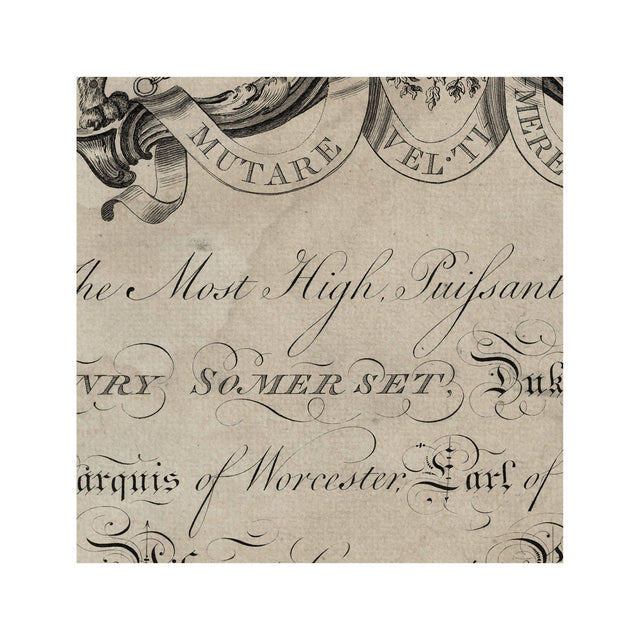 MUTARE VEL·TI MERE
he Most High, Puiſsant
NRY SOMERSET, Duk
arquis of Worcester, Earl of